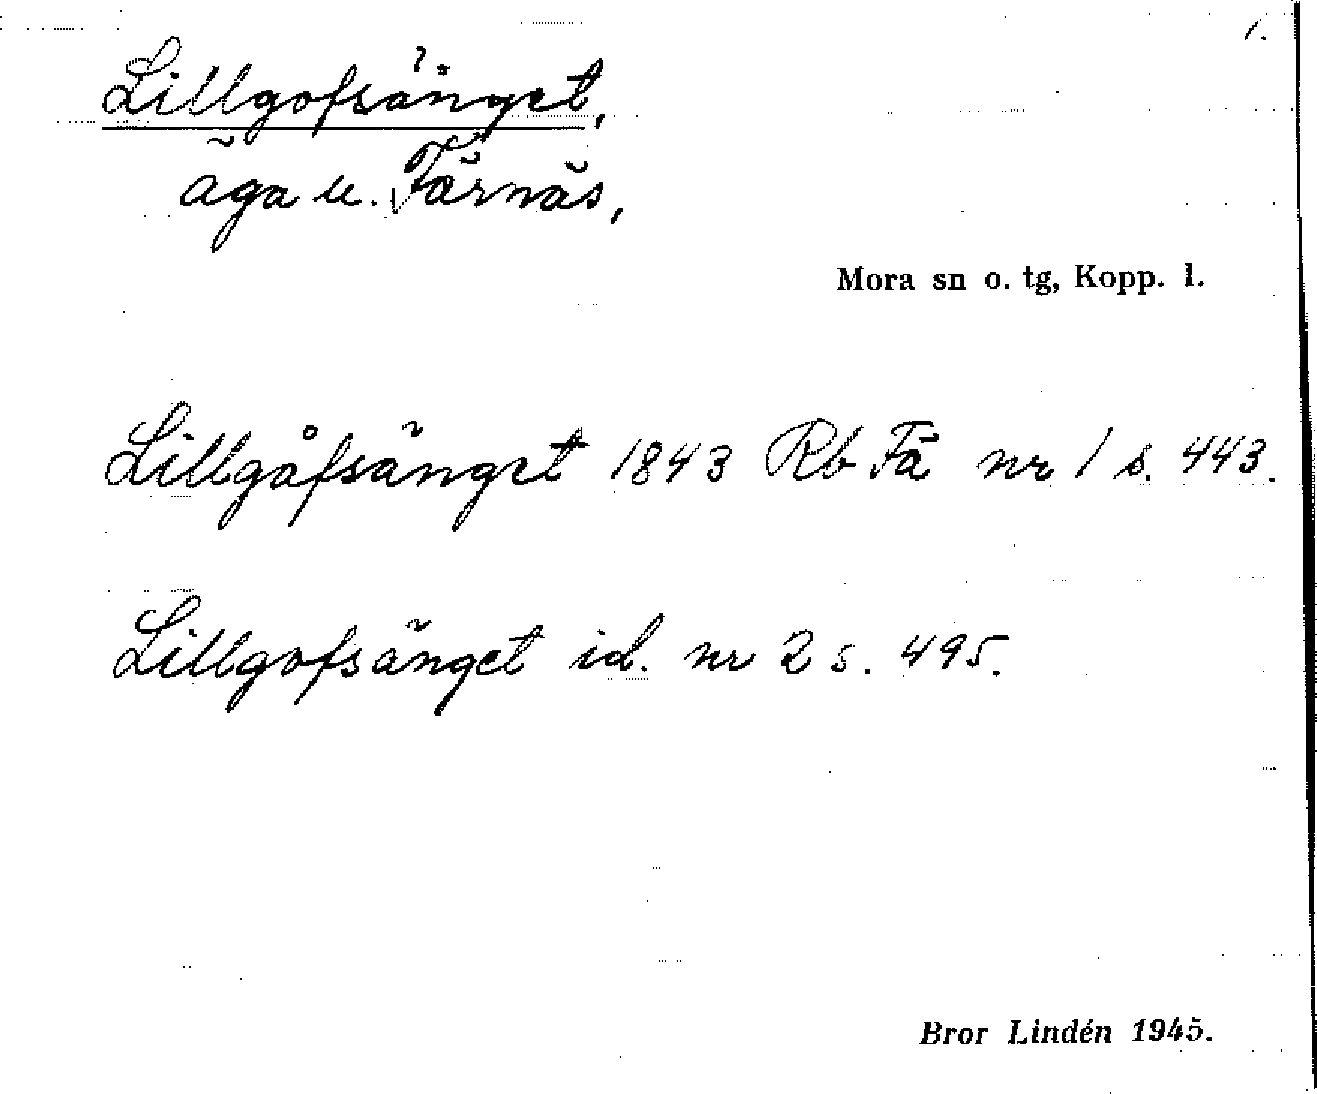 1.
Lillgofsänget,
äga u. Färnäs,
Mora sn o. tg, Kopp. l.
Lillgåfsänget 1843 Rb Fä nr 1 s. 443.
Lillgofsänget id. nr 2 s. 495.
Bror Lindén 1945.